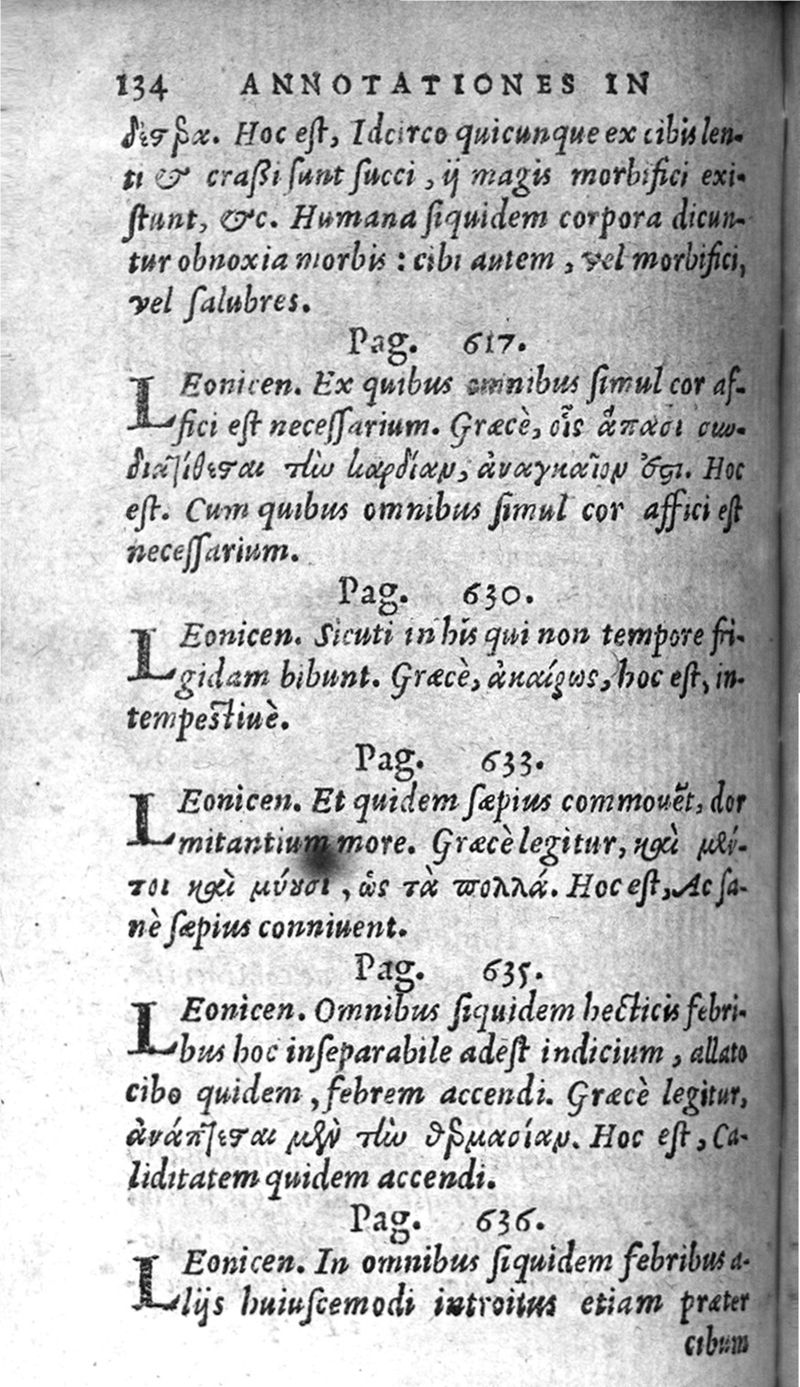 134 ANNOTATIONES IN
Hoc est, Idcirco quicunque ex cibis len-
ti & crassi sunt succi, ij magis morbifici exi-
stunt, &c. Humana siquidem corpora dicun-
tur obnoxia morbis : cibi autem, vel morbifici,
vel salubres.
Pag. 617.
LEonicen. Ex quibus omnibus simul cor af-
fici est necessarium. Græcè, οἷς ἅπασι συν-
διατίθεται τὴν καρδίαν, ἀναγκαῖον ἐστι. Hoc
est. Cum quibus omnibus simul cor affici est
necessarium.
Pag. 630.
LEonicen. Sicuti in his qui non tempore fri-
gidam bibunt. Græcè, ἀκαίρως, hoc est, in-
tempestiuè.
Pag. 633.
LEonicen. Et quidem sæpius commouēt, dor
mitantium more. Græcè legitur, καὶ μέν-
τοι καὶ μύουσι, ὡς τὰ πολλά. Hoc est, Ac sa-
nè sæpius conniuent.
Pag. 635.
LEonicen. Omnibus siquidem hecticis febri-
bus hoc inseparabile adest indicium, allato
cibo quidem, febrem accendi. Græcè legitur,
ἀνάπτεται μὲν τὴν θερμασίαν. Hoc est, Ca-
liditatem quidem accendi.
Pag. 636.
LEonicen. In omnibus siquidem febribus a-
lijs huiuscemodi introitus etiam præter
cibum